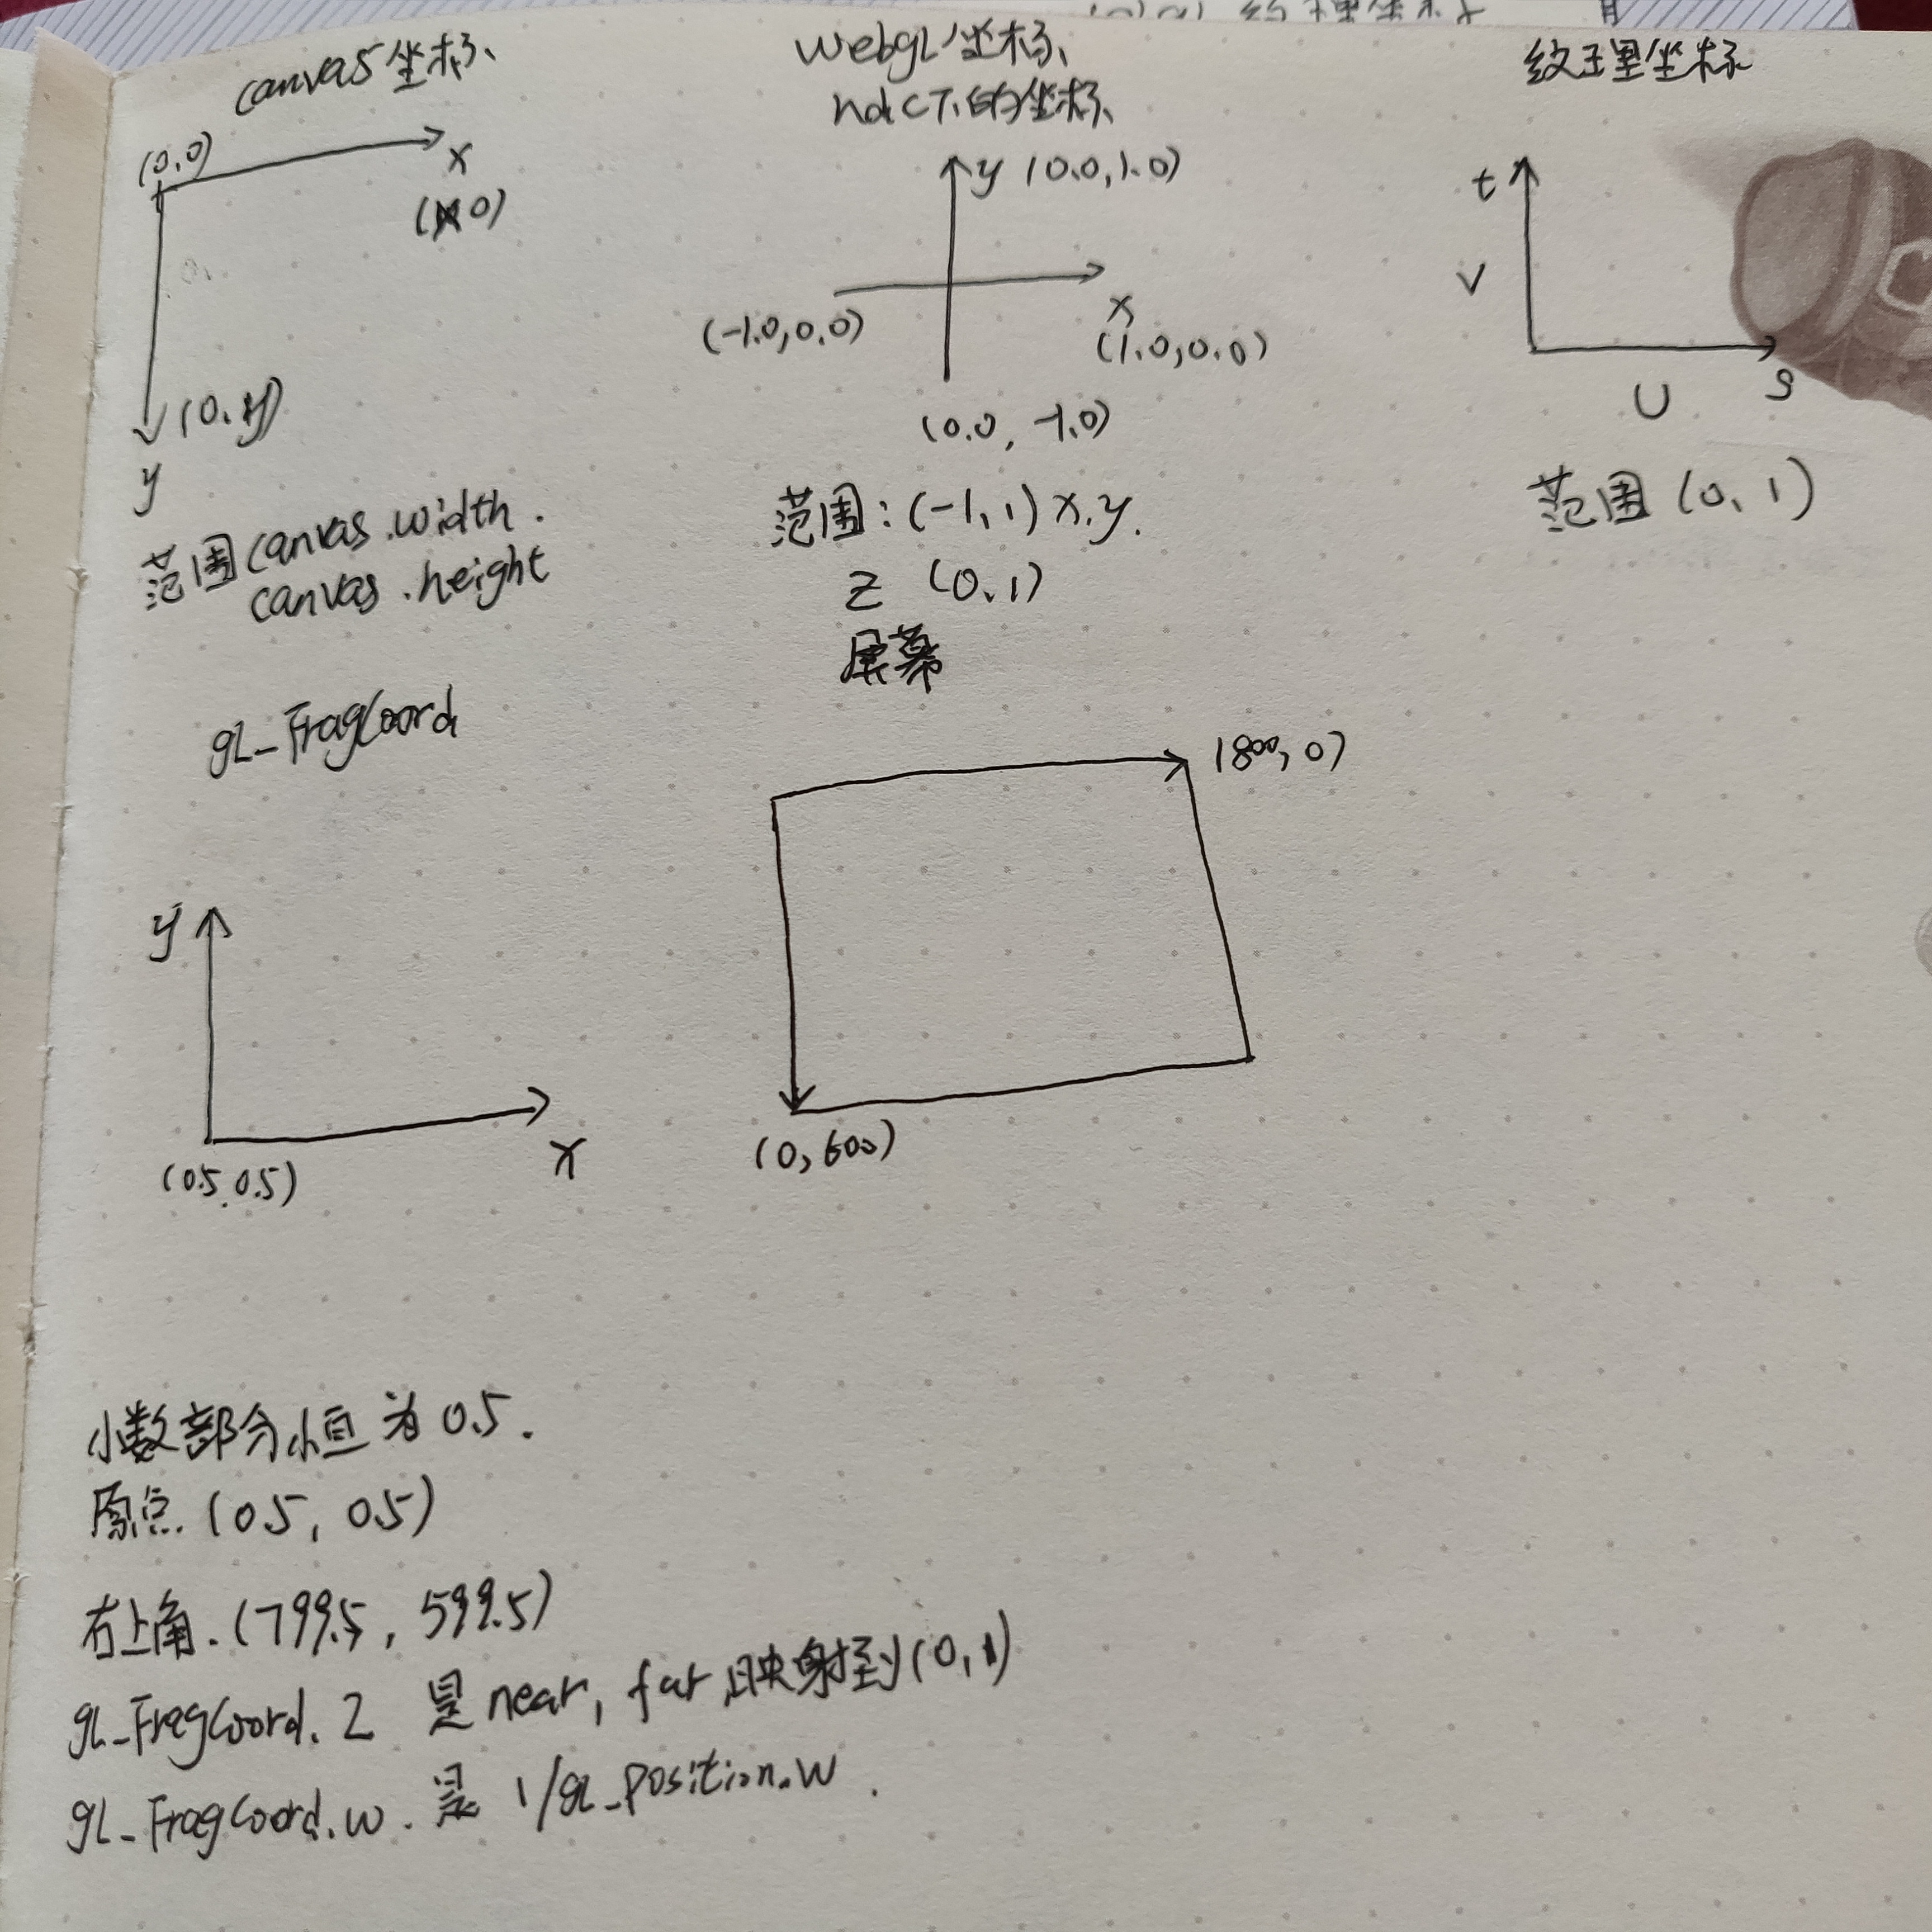 canvas坐标
(0,0)
x
0)
(0, y)
y
范围canvas.width.
canvas.height
webgl坐标
ndc下的坐标
y (0.0,1.0)
(-1.0,0.0)
x
(1.0,0.0)
(0.0, -1.0)
范围:(-1,1) x.y.
z (0,1)
屏幕
纹理坐标
t
V
U
S
范围 (0, 1)
gl_FragCoord
y
x
(0.5 0.5)
(800, 0)
(0, 600)
小数部分恒为0.5.
原点 (0.5, 0.5)
右上角.(799.5, 599.5)
gl_FragCoord.z 是near, far映射到(0,1)
gl_FragCoord.w.是 1/gl_position.w.